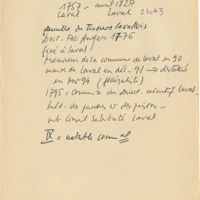 1757 - avril 1827
Laval Laval 27043
famille de tisserands lavallois
Doct. Fac Angers 1776
fixé à Laval
Procureur de la commune de Laval en 90
maire de Laval en déc. 91 → destitué
en nov 94 (fédéraliste)
1795 = commissaire du Direct. exécutif Laval
méd. des pauvres et des prisons
mb Conseil Salubrité Laval
IX = notable communal